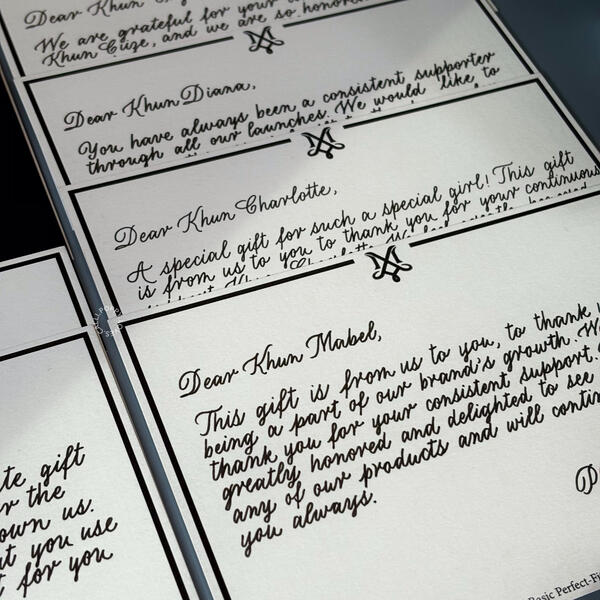 Dear Khun
We are grateful for your
Khun Cuze, and we are so honored
Dear Khun Diana,
You have always been a consistent supporter
through all our launches. We would like to
Dear Khun Charlotte,
A special gift for such a special girl! This gift
is from us to you to thank you for your continuous
Dear Khun Mabel,
This gift is from us to you, to thank
being a part of our brand's growth. We
thank you for your consistent support.
greatly honored and delighted to see
any of our products and will contin
you always.
gift
r the
own us.
t you use
t for you
Basic Perfect-Fi